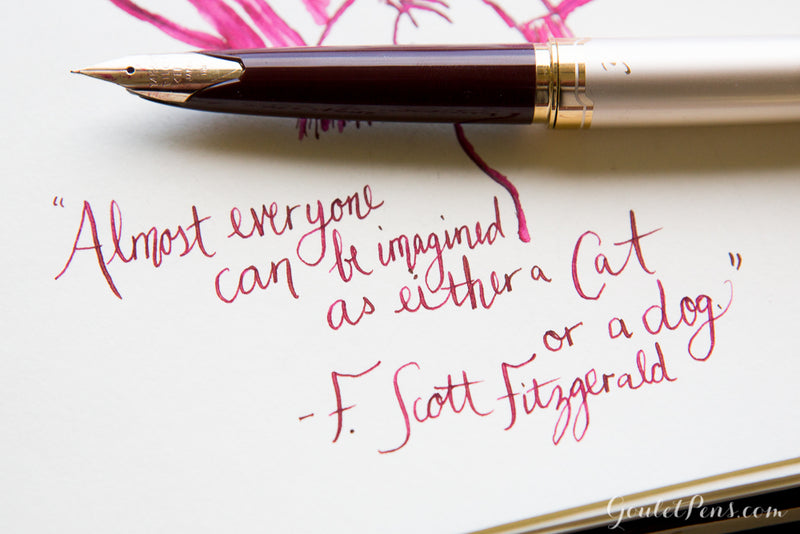 “Almost everyone
can be imagined
as either a Cat
or a dog.”
- F. Scott Fitzgerald
GouletPens.com